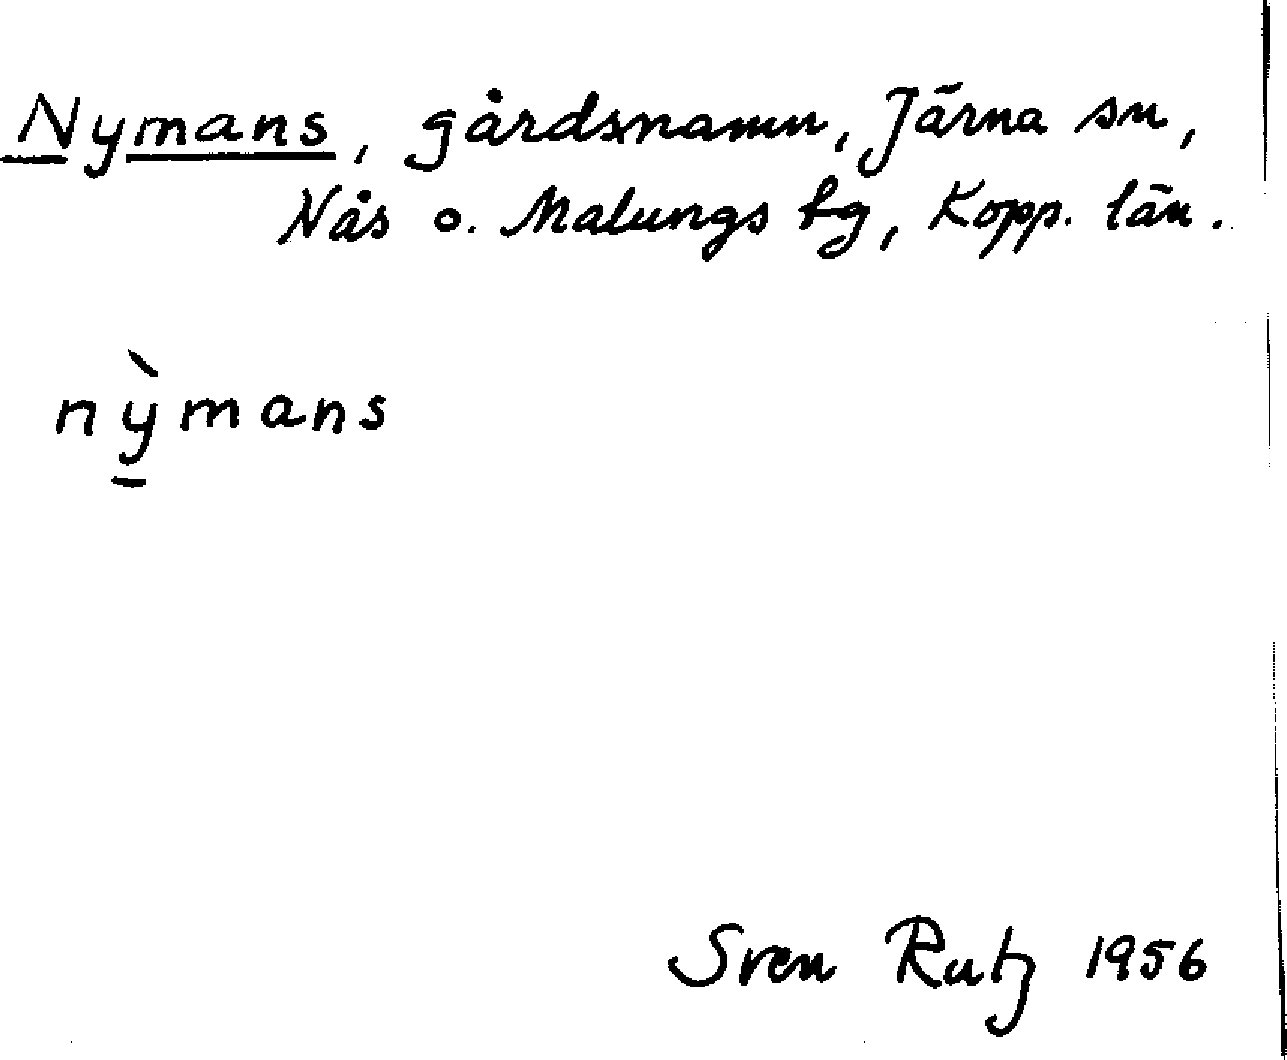 Nymans, gårdsnamn, Järna sn,
Nås o. Malungs fg, Kopp. län.
nỳ̱mans
Sven Rutz 1956